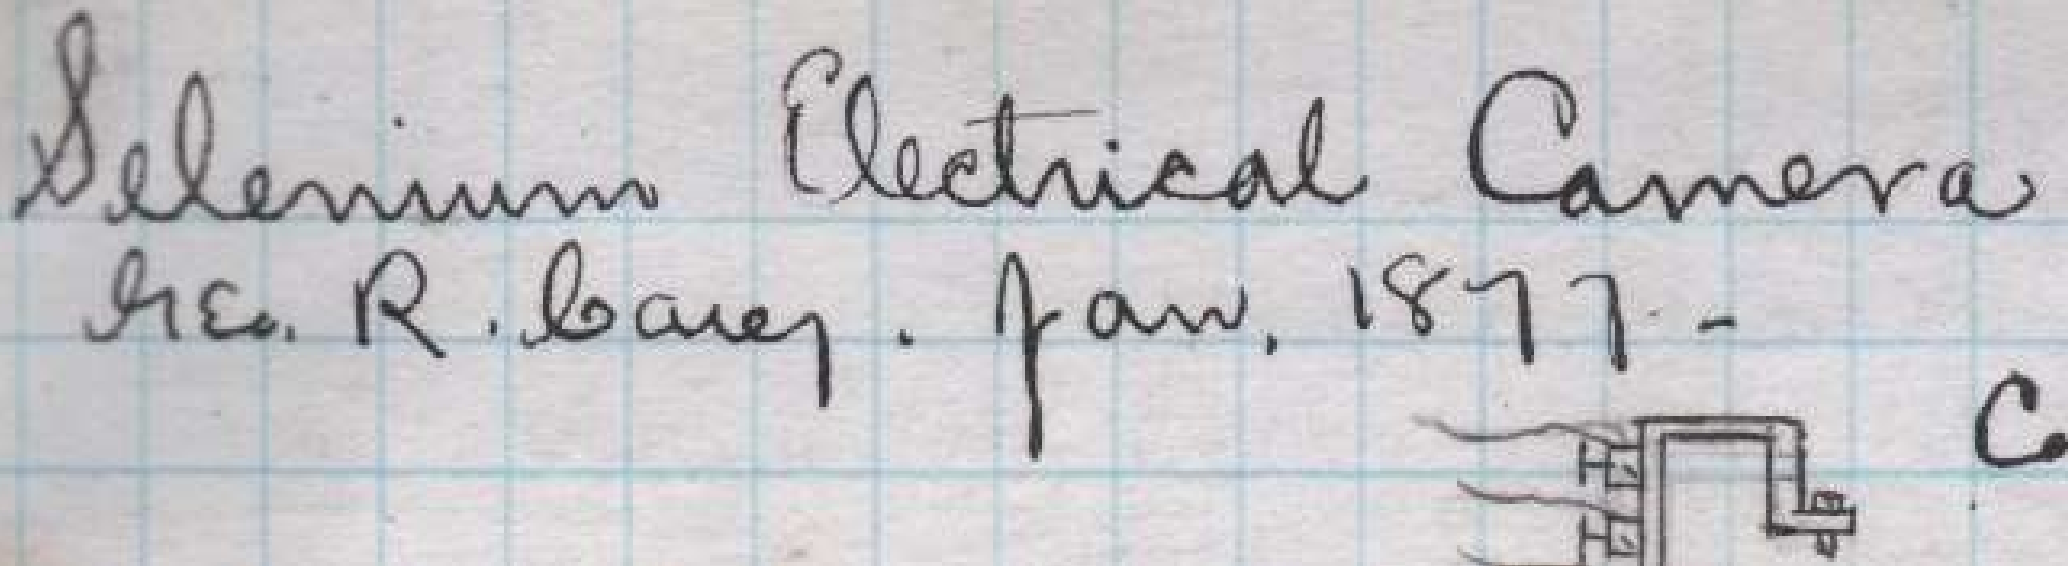 Selenium Electrical Camera
Geo. R. Carey. Jan. 1877 -